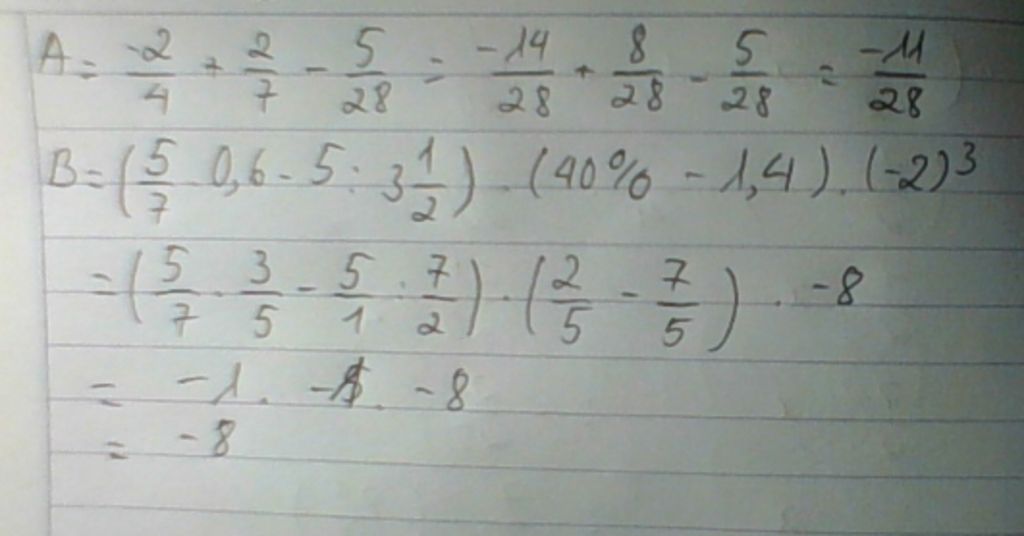 A = -2/4 + 2/7 - 5/28 = -14/28 + 8/28 - 5/28 = -11/28
B = (5/7 0,6 - 5 : 3 1/2) . (40% - 1,4) . (-2)³
= (5/7 . 3/5 - 5/1 : 7/2) . (2/5 - 7/5) . -8
= -1 . -1 . -8
= -8